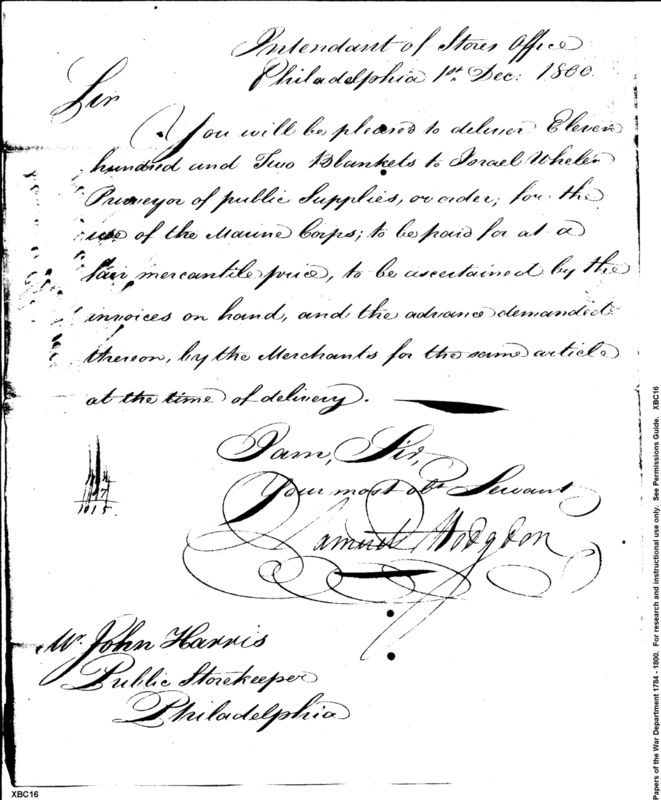 Intendant of Stores Office
Philadelphia 1st. Dec: 1800.
Sir
You will be pleased to deliver Eleven
hundred and Two Blankets to Israel Whelen
Purveyor of public Supplies, or order; for the
use of the Marine Corps; to be paid for at a
fair mercantile price, to be ascertained by the
invoices on hand, and the advance demanded
thereon, by the Merchants for the same article
at the time of delivery.
I am, Sir,
Your most obt. Servant
Samuel Hodgdon
1015.
Mr. John Harris
Public Storekeeper
Philadelphia
XBC16
Papers of the War Department 1784 - 1800. For research and instructional use only. See Permissions Guide. XBC16